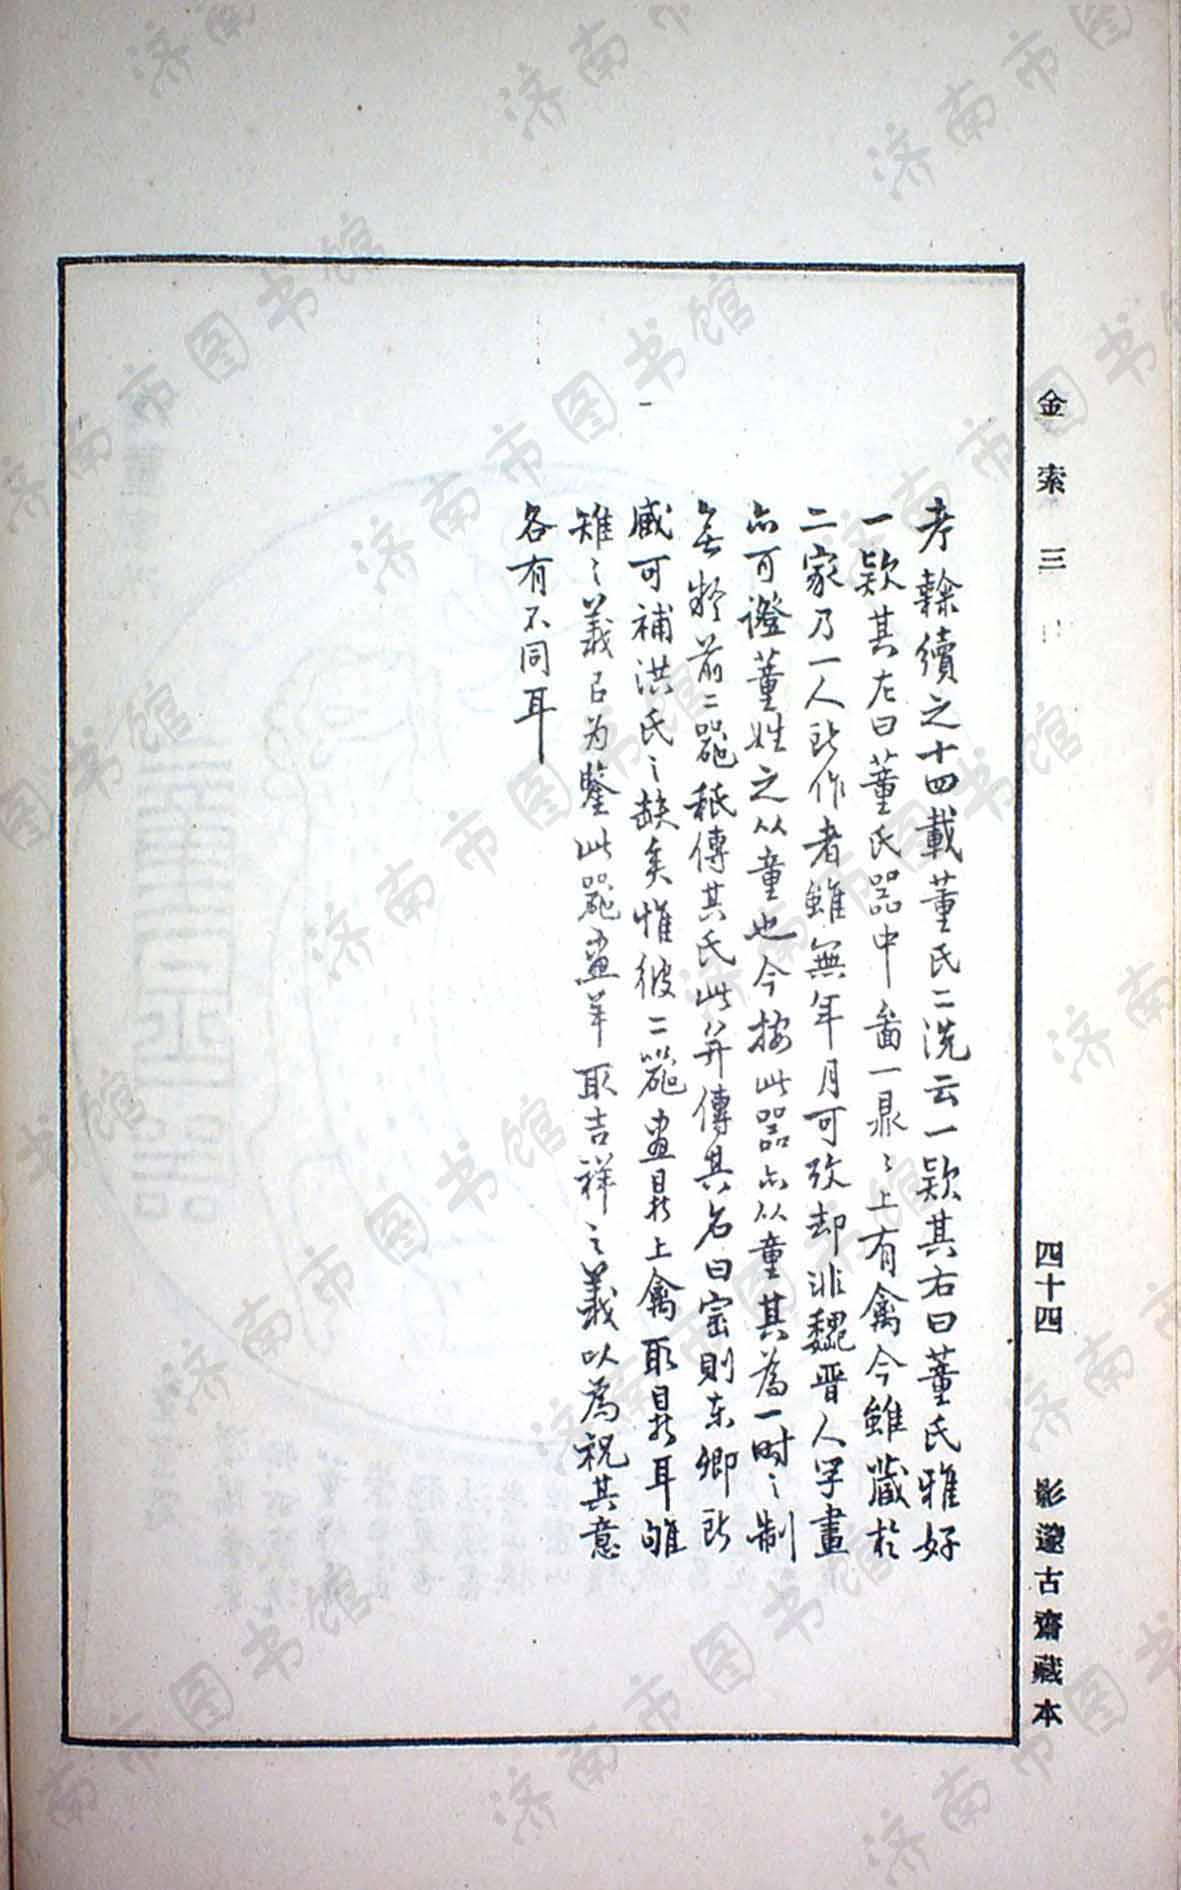 金索三
四十四
影邃古齋藏本
考隸續之十四載董氏二洗云一款其右曰董氏雅好
一款其左曰董氏器中畫一鼎〻上有禽今雖藏於
二家乃一人所作者雖無年月可攷却非魏晉人字畫
亦可證董姓之从童也今按此器亦从童其為一時〻制
無疑前二器秖傳其氏此并傳其名曰宻則東卿所
藏可補洪氏〻缺矣惟彼二器畫鼎上禽取鼎耳雊
雉〻義已为鑿此器畫羊取吉祥〻義以為祝其意
各有不同耳
济南市图书馆